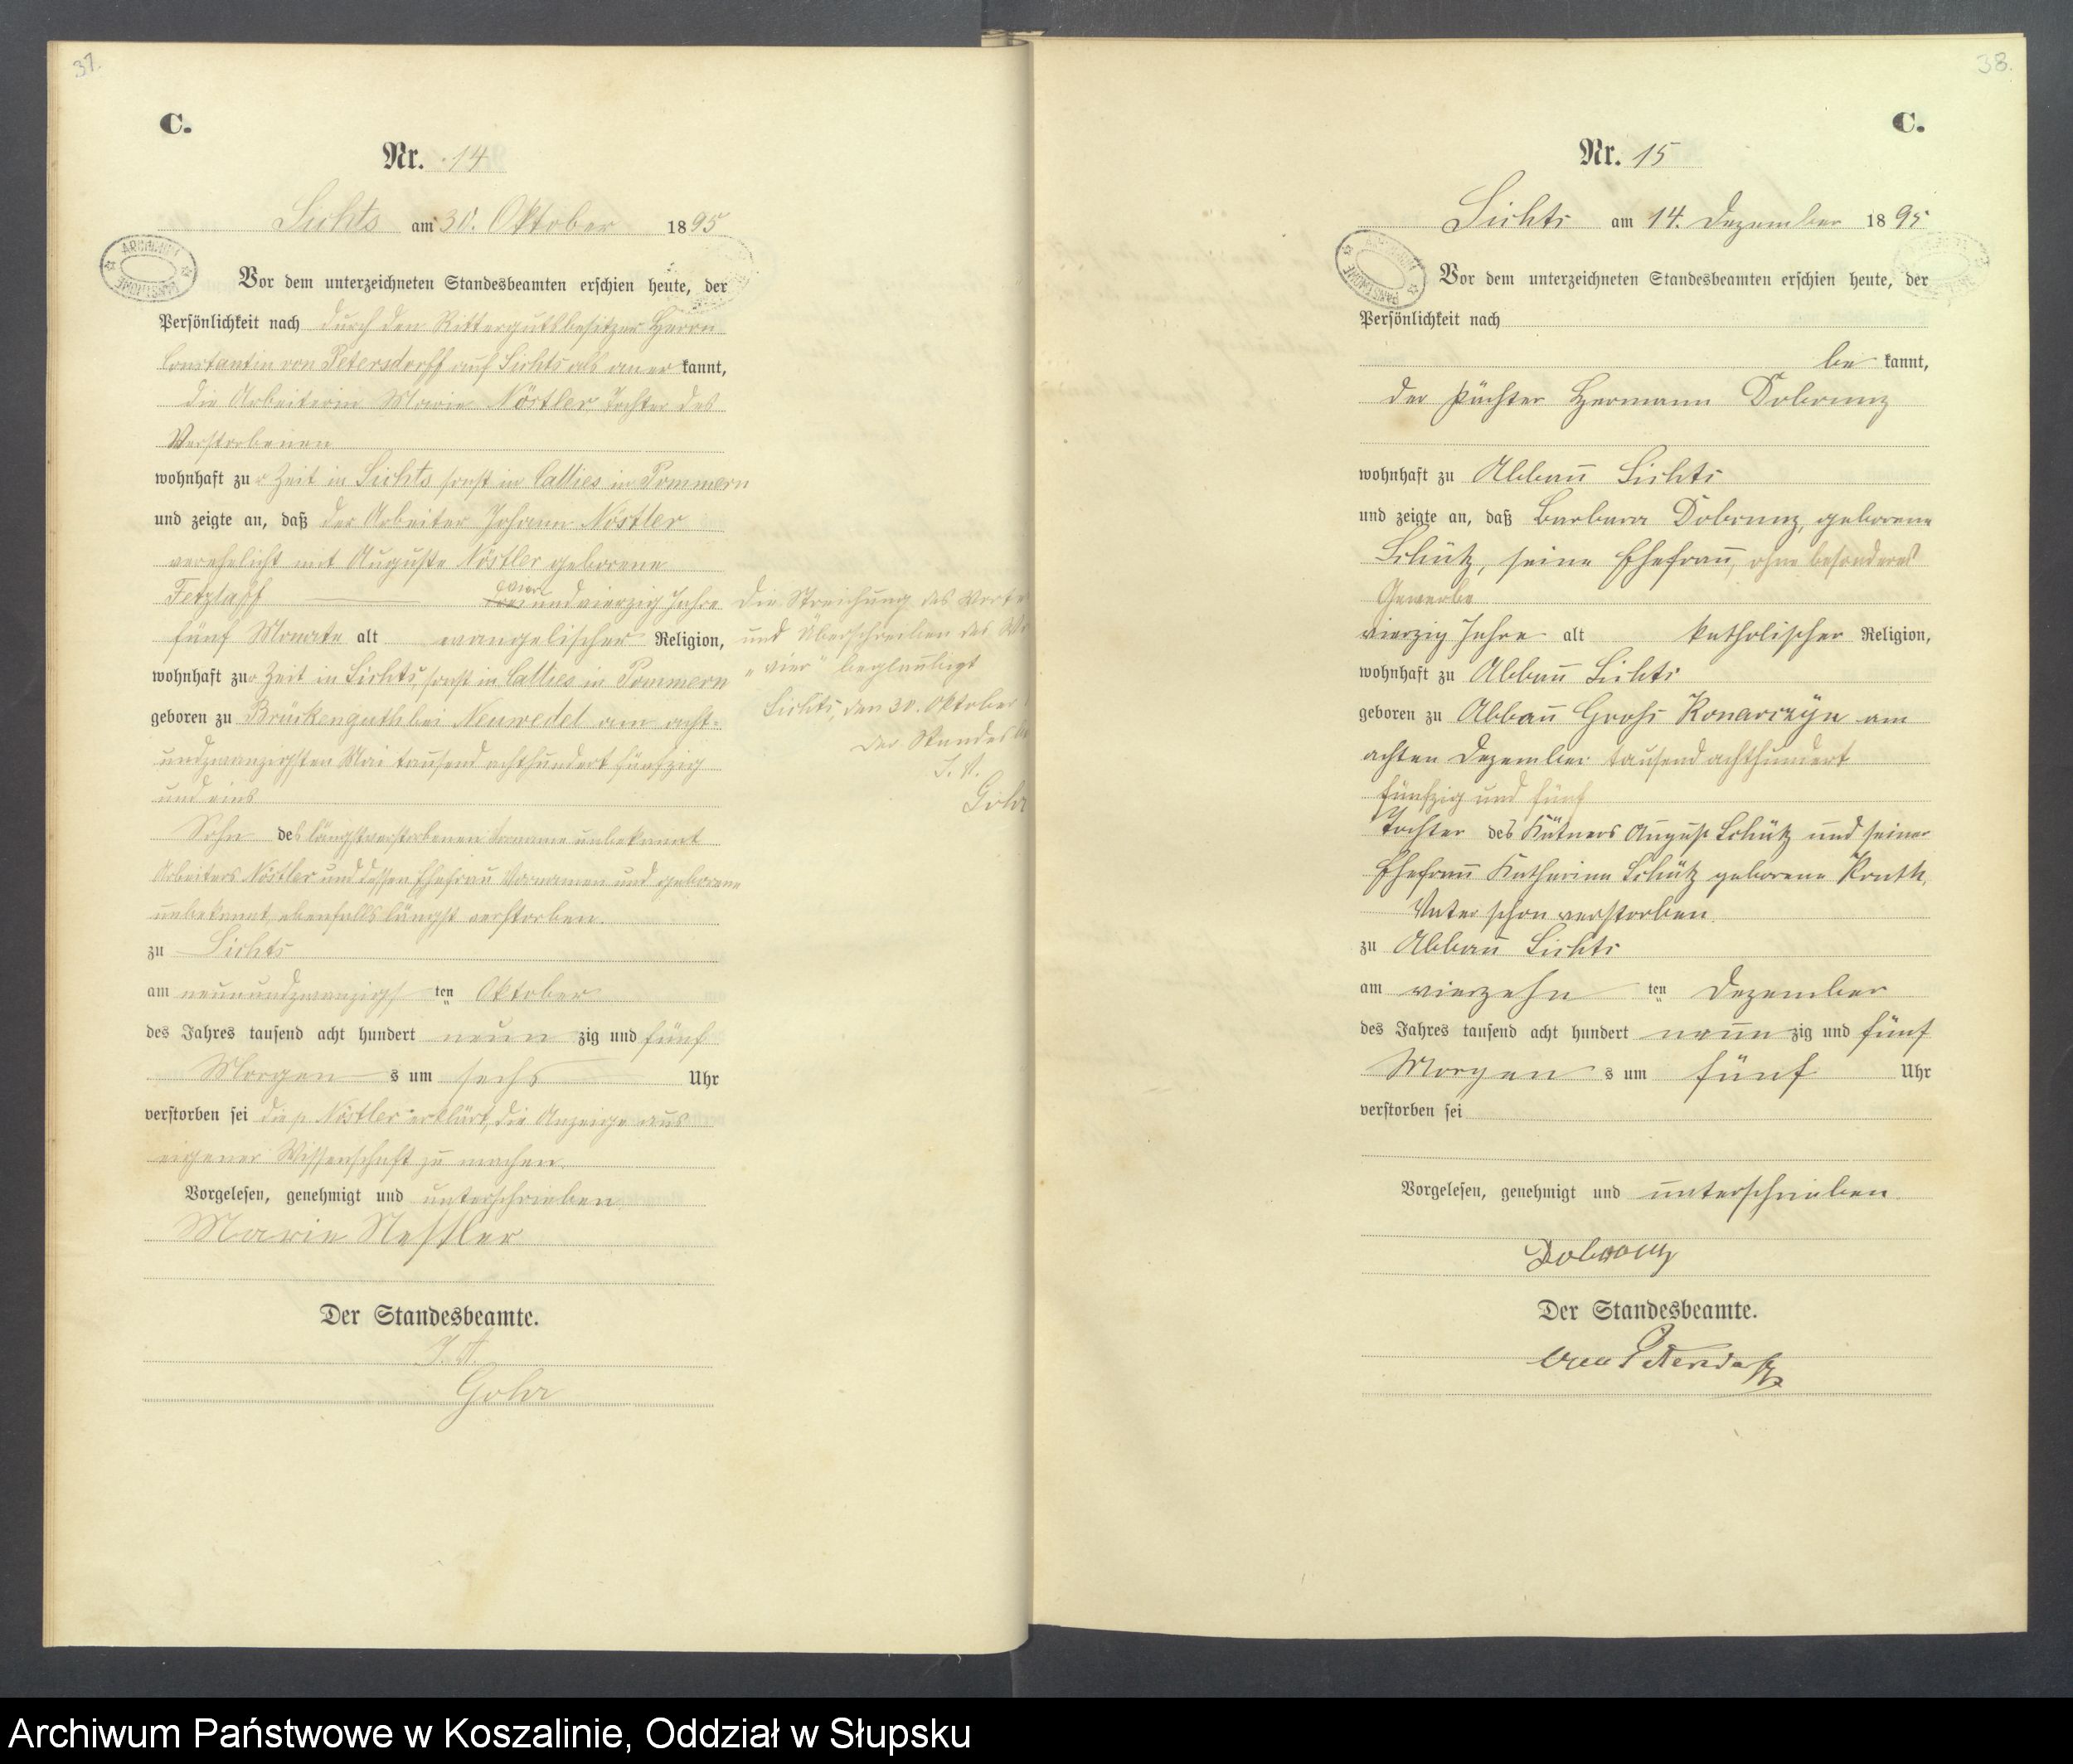 37.
C.
Nr. 14
Lichts am 30. Oktober 1895
ARCHIWUM PAŃSTWOWE
Vor dem unterzeichneten Standesbeamten erschien heute, der
Persönlichkeit nach durch den Rittergutsbesitzer Herrn
Constantin von Petersdorff auf Lichts als anerkannt,
die Arbeiterin Marie Nöstler Tochter des
Verstorbenen
wohnhaft zur Zeit in Lichts sonst in Callies in Pommern
und zeigte an, daß der Arbeiter Johann Nöstler
verehelicht mit Auguste Nöstler geborene
Tetzlaff
vier
und vierzig Jahre
fünf Monate alt evangelischer Religion,
wohnhaft zur Zeit in Lichts, sonst in Callies in Pommern
geboren zu Brückenguth bei Neuwedel am acht-
undzwanzigsten Mai tausend achthundert fünfzig
und eins
Sohn des längstverstorbenen Vorname unbekannt
Arbeiters Nöstler und dessen Ehefrau Vornamen und geborene
unbekannt, ebenfalls längst verstorben.
zu Lichts
am neunundzwanzigsten Oktober
des Jahres tausend acht hundert neunzig und fünf
Morgens um sechs Uhr
verstorben sei die p. Nöstler erklärt, die Anzeige aus
eigener Wissenschaft zu machen.
Vorgelesen, genehmigt und unterschrieben
Marie Nestler
Der Standesbeamte.
Gohr
Die Streichung des Worte
und Überschreiben des
„vier" beglaubigt
Lichts, den 30. Oktober
Der Standes
I. V.
Gohr
38.
C.
Nr. 15
Lichts am 14. Dezember 1895
ARCHIWUM PAŃSTWOWE
Vor dem unterzeichneten Standesbeamten erschien heute, der
Persönlichkeit nach
bekannt,
der Pächter Hermann Dobrunz
wohnhaft zu Abbau Lichts
und zeigte an, daß Barbara Dobrunz, geborene
Schütz, seine Ehefrau, ohne besonderes
Gewerbe
vierzig Jahre alt katholischer Religion,
wohnhaft zu Abbau Lichts
geboren zu Abbau Groß Konarczyn am
achten Dezember tausend achthundert
fünfzig und fünf
Tochter des Kätners August Schütz und seiner
Ehefrau Katharina Schütz geborene
Vater schon verstorben.
zu Abbau Lichts
am vierzehnten Dezember
des Jahres tausend acht hundert neunzig und fünf
Morgens um fünf Uhr
verstorben sei
Vorgelesen, genehmigt und unterschrieben.
Dobrunz
Der Standesbeamte.
von Petersdorff
Archiwum Państwowe w Koszalinie, Oddział w Słupsku